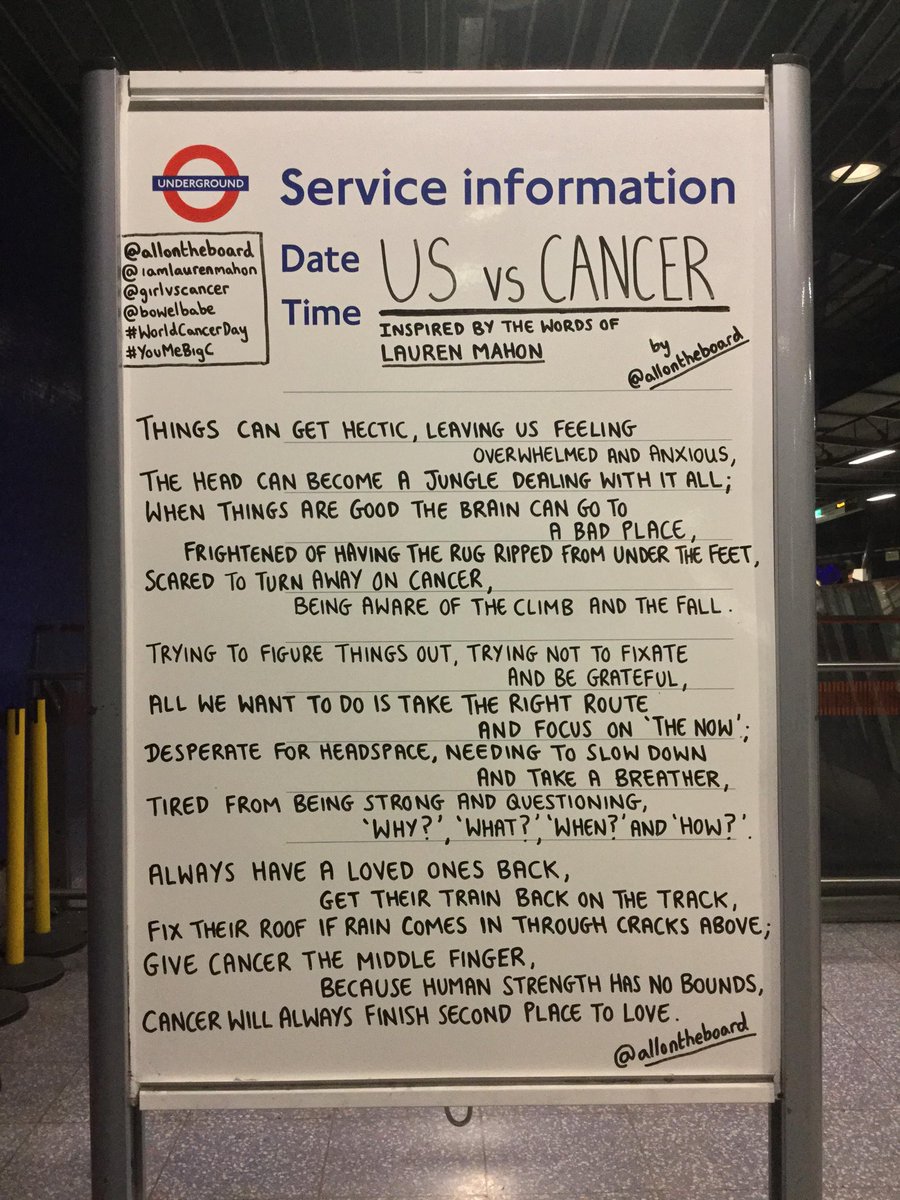 UNDERGROUND
Service information
@allontheboard
@iamlaurenmahon
@girlvscancer
@bowelbabe
#WorldCancerDay
#YouMeBigC
Date
Time
US vs CANCER
INSPIRED BY THE WORDS OF
LAUREN MAHON
by
@allontheboard
THINGS CAN GET HECTIC, LEAVING US FEELING
OVERWHELMED AND ANXIOUS,
THE HEAD CAN BECOME A JUNGLE DEALING WITH IT ALL;
WHEN THINGS ARE GOOD THE BRAIN CAN GO TO
A BAD PLACE,
FRIGHTENED OF HAVING THE RUG RIPPED FROM UNDER THE FEET,
SCARED TO TURN AWAY ON CANCER,
BEING AWARE OF THE CLIMB AND THE FALL.
TRYING TO FIGURE THINGS OUT, TRYING NOT TO FIXATE
AND BE GRATEFUL,
ALL WE WANT TO DO IS TAKE THE RIGHT ROUTE
AND FOCUS ON 'THE NOW';
DESPERATE FOR HEADSPACE, NEEDING TO SLOW DOWN
AND TAKE A BREATHER,
TIRED FROM BEING STRONG AND QUESTIONING,
'WHY?', 'WHAT?', 'WHEN?' AND 'HOW?'.
ALWAYS HAVE A LOVED ONES BACK,
GET THEIR TRAIN BACK ON THE TRACK,
FIX THEIR ROOF IF RAIN COMES IN THROUGH CRACKS ABOVE;
GIVE CANCER THE MIDDLE FINGER,
BECAUSE HUMAN STRENGTH HAS NO BOUNDS,
CANCER WILL ALWAYS FINISH SECOND PLACE TO LOVE.
@allontheboard